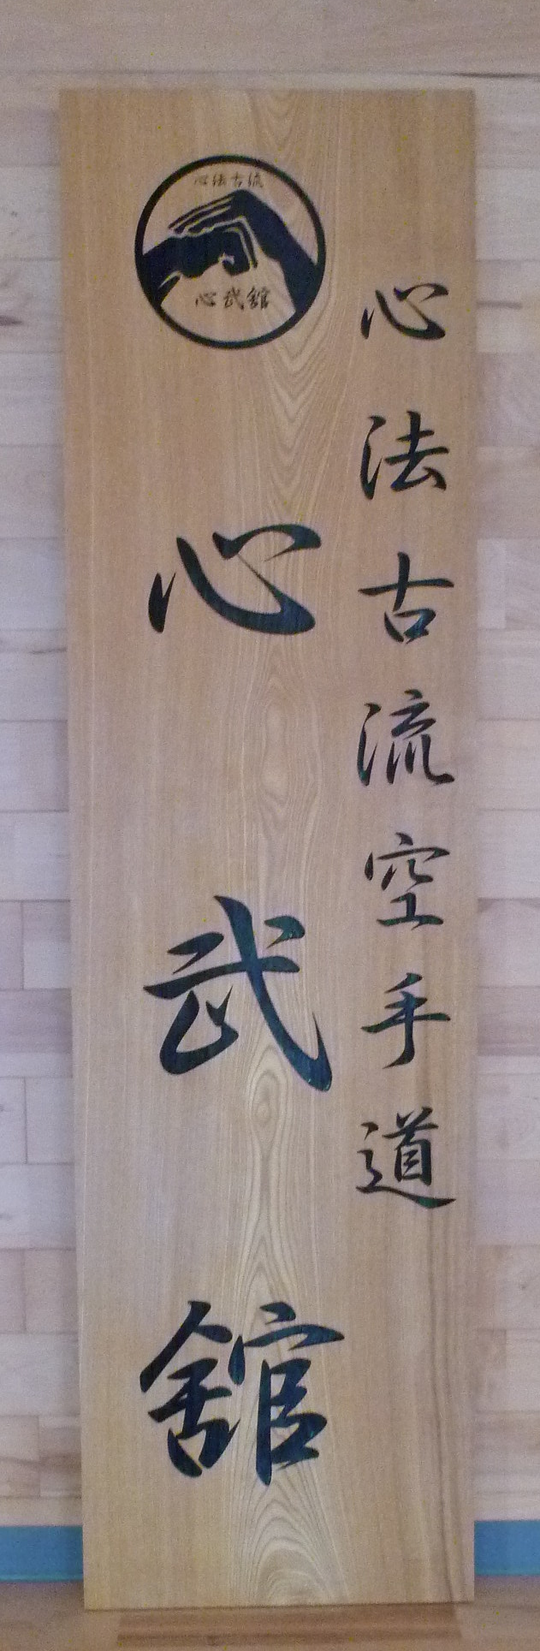 心法古流空手道
心法古流
心武舘
心武舘